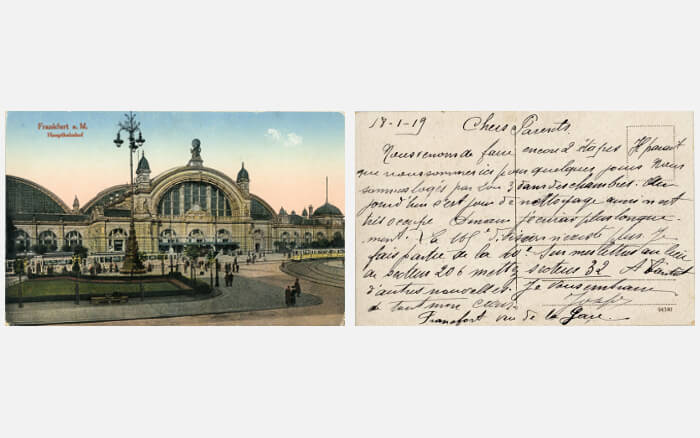 Frankfurt a. M.
Hauptbahnhof
18-1-19
Chers Parents
Nous venons de faire encore 2 étapes Il parait
que nous sommes ici pour quelques jours Nous
sommes logés par 2 ou 3 dans des chambres. Au-
jourd'hui c'est jour de nettoyage aussi on est
très occupé Demain plus longue-
ment. La d'Infanterie n'existe plus Je
fais partie de la Sur mes lettres au lieu
de secteur 206 mettez secteur 82 A bientôt
d'autres nouvelles. Je vous embrasse
de tout mon cœur
Francfort vue de la Gare.
94341